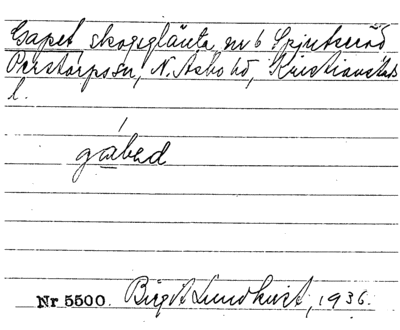 Gapet skogsglänta, nr 6 Spjutseröd
Perstorps sn, N. Åsbo hd, Kristianstads
l.
gabed
Nr 5500. Birgit Lundkvist, 1936.